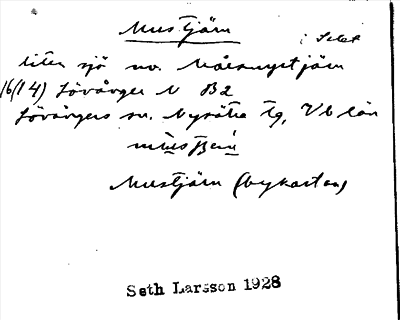 Mustjärn
i Selet
liten sjö no. Måsmyrtjärn
16(14) Lövånger N B2
Lövångers sn. Nysätra tg, Vb län
Mustjärn (bykartan)
Seth Larsson 1928